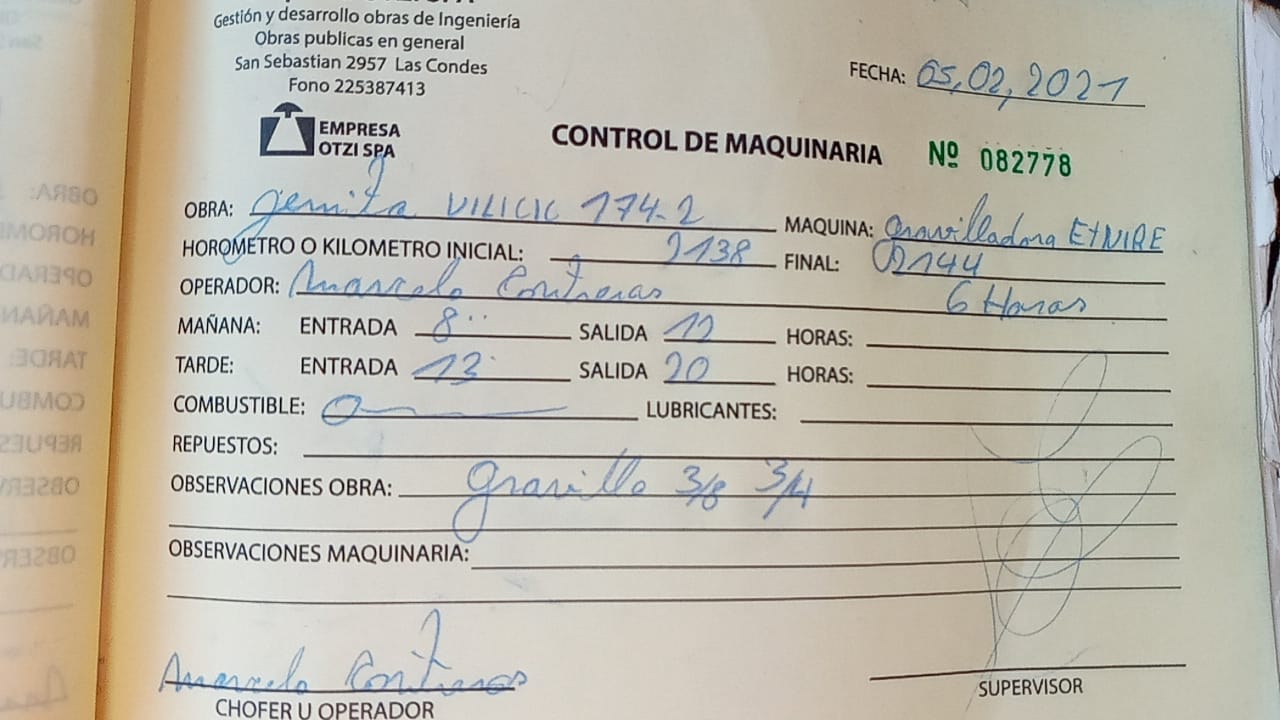 Gestión y desarrollo obras de Ingeniería
Obras publicas en general
San Sebastian 2957 Las Condes
Fono 225387413
FECHA: 05,02,2021
EMPRESA
OTZI SPA
CONTROL DE MAQUINARIA Nº 082778
OBRA: VILICIC 174-2 MAQUINA: Gravilladora ETNIRE
HOROMETRO O KILOMETRO INICIAL: 2138 FINAL: 02144
OPERADOR: Marcelo Contreras 6 Horas
MAÑANA: ENTRADA 8 SALIDA 12 HORAS:
TARDE: ENTRADA 13 SALIDA 20 HORAS:
COMBUSTIBLE: LUBRICANTES:
REPUESTOS:
OBSERVACIONES OBRA: gravilla 3/8 3/4
OBSERVACIONES MAQUINARIA:
Marcelo Contreras
CHOFER U OPERADOR
SUPERVISOR